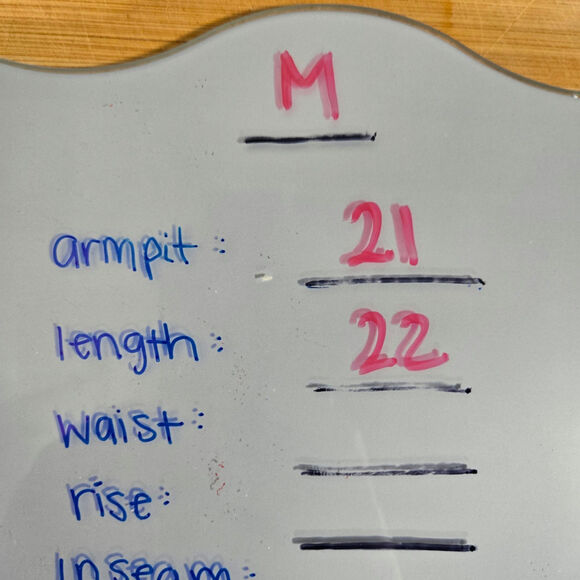 M
armpit: 21
length: 22
waist:
rise:
inseam: